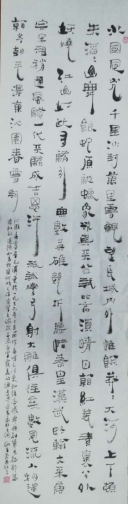 北國風光千里冰封萬里雪飄望長城內外惟餘莽莽大河上下頓
失滔滔山舞銀蛇原馳蠟象欲與天公試比高須晴日看紅裝素裹分外
妖嬈江山如此多嬌引無數英雄競折腰惜秦皇漢武略輸文采唐
宗宋祖稍遜風騷一代天驕成吉思汗只識彎弓射大雕俱往矣數風流人物還
看今朝毛澤東沁園春雪